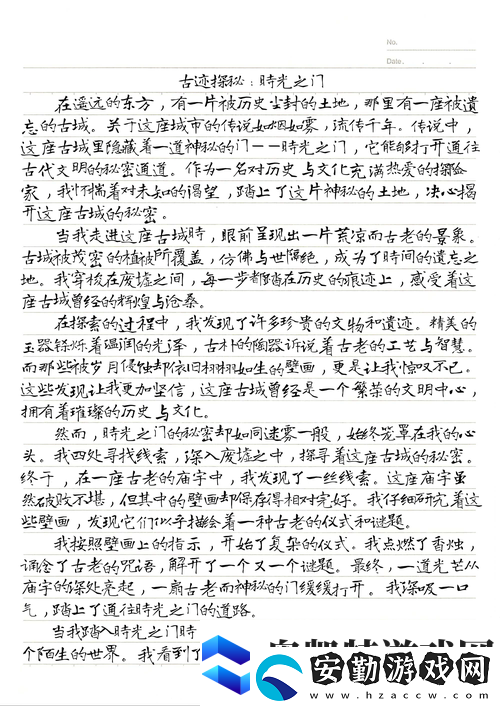 No.
Date.
古迹探秘：時光之门
在遥远的东方，有一片被历史尘封的土地，那里有一座被遺
忘的古城。关于这座城市的传说如烟如雾，流传千年。传说中，
这座古城里隐藏着一道神秘的门——時光之门，它能够打开通往
古代文明的秘密通道。作为一名对历史与文化充满热爱的探险
家，我怀揣着对未知的渴望，踏上了这片神秘的土地，决心揭
开这座古城的秘密。
当我走进这座古城時，眼前呈现出一片荒凉而古老的景象。
古城被茂密的植被所覆盖，仿佛与世隔绝，成为了时间的遺忘之
地。我穿梭在废墟之间，每一步都踏在历史的痕迹上，感受着这
座古城曾经的辉煌与沧桑。
在探索的过程中，我发现了许多珍贵的文物和遺迹。精美的
玉器铄烁着温润的光泽，古朴的陶器诉说着古老的工艺与智慧。
而那些被岁月侵蚀却依旧栩栩如生的壁画，更是让我惊叹不已。
这些发现让我更加坚信，这座古城曾经是一个繁荣的文明中心，
拥有着璀璨的历史与文化。
然而，時光之门的秘密却如同迷雾一般，始终笼罩在我的心
头。我四处寻找线索，深入废墟之中，探寻着这座古城的秘密。
终于，在一座古老的庙宇中，我发现了一丝线索。这座庙宇虽
然破败不堪，但其中的壁画却保存得相对完好。我仔细研究着这
些壁画，发现它们似乎描绘着一种古老的仪式和谜题。
我按照壁画上的指示，开始了复杂的仪式。我点燃了香烛，
诵念了古老的咒语，解开了一个又一个谜题。最终，一道光芒从
庙宇的深处亮起，一扇古老而神秘的门缓缓打开。我深吸一口
气，踏上了通往時光之门的道路。
当我踏入時光之门時
个陌生的世界。我看到了
安勤游戏网
www.hzaccw.com